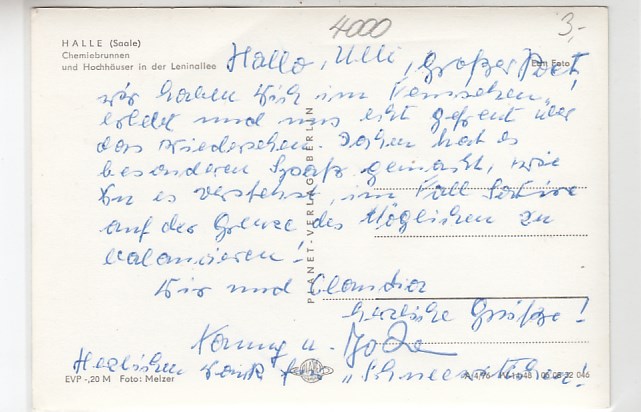 4000
3,-
HALLE (Saale)
Chemiebrunnen
und Hochhäuser in der Leninallee
Echt Foto
Hallo, Ulli, großer Poet,
wir haben Dich im Fernsehen
erlebt und uns echt gefreut über
das Wiedersehen. Daher hat es
besonderen Spaß gemacht, wie
Du es verstehst, im Fall Satire
auf der Grenze des Möglichen zu
balancieren!
Wir sind Claudia
herzliche Grüße!
u.
Herzlichen Dank für "Schneewittchen"!
PLANET-VERLAG BERLIN
EVP -,20 M Foto: Melzer